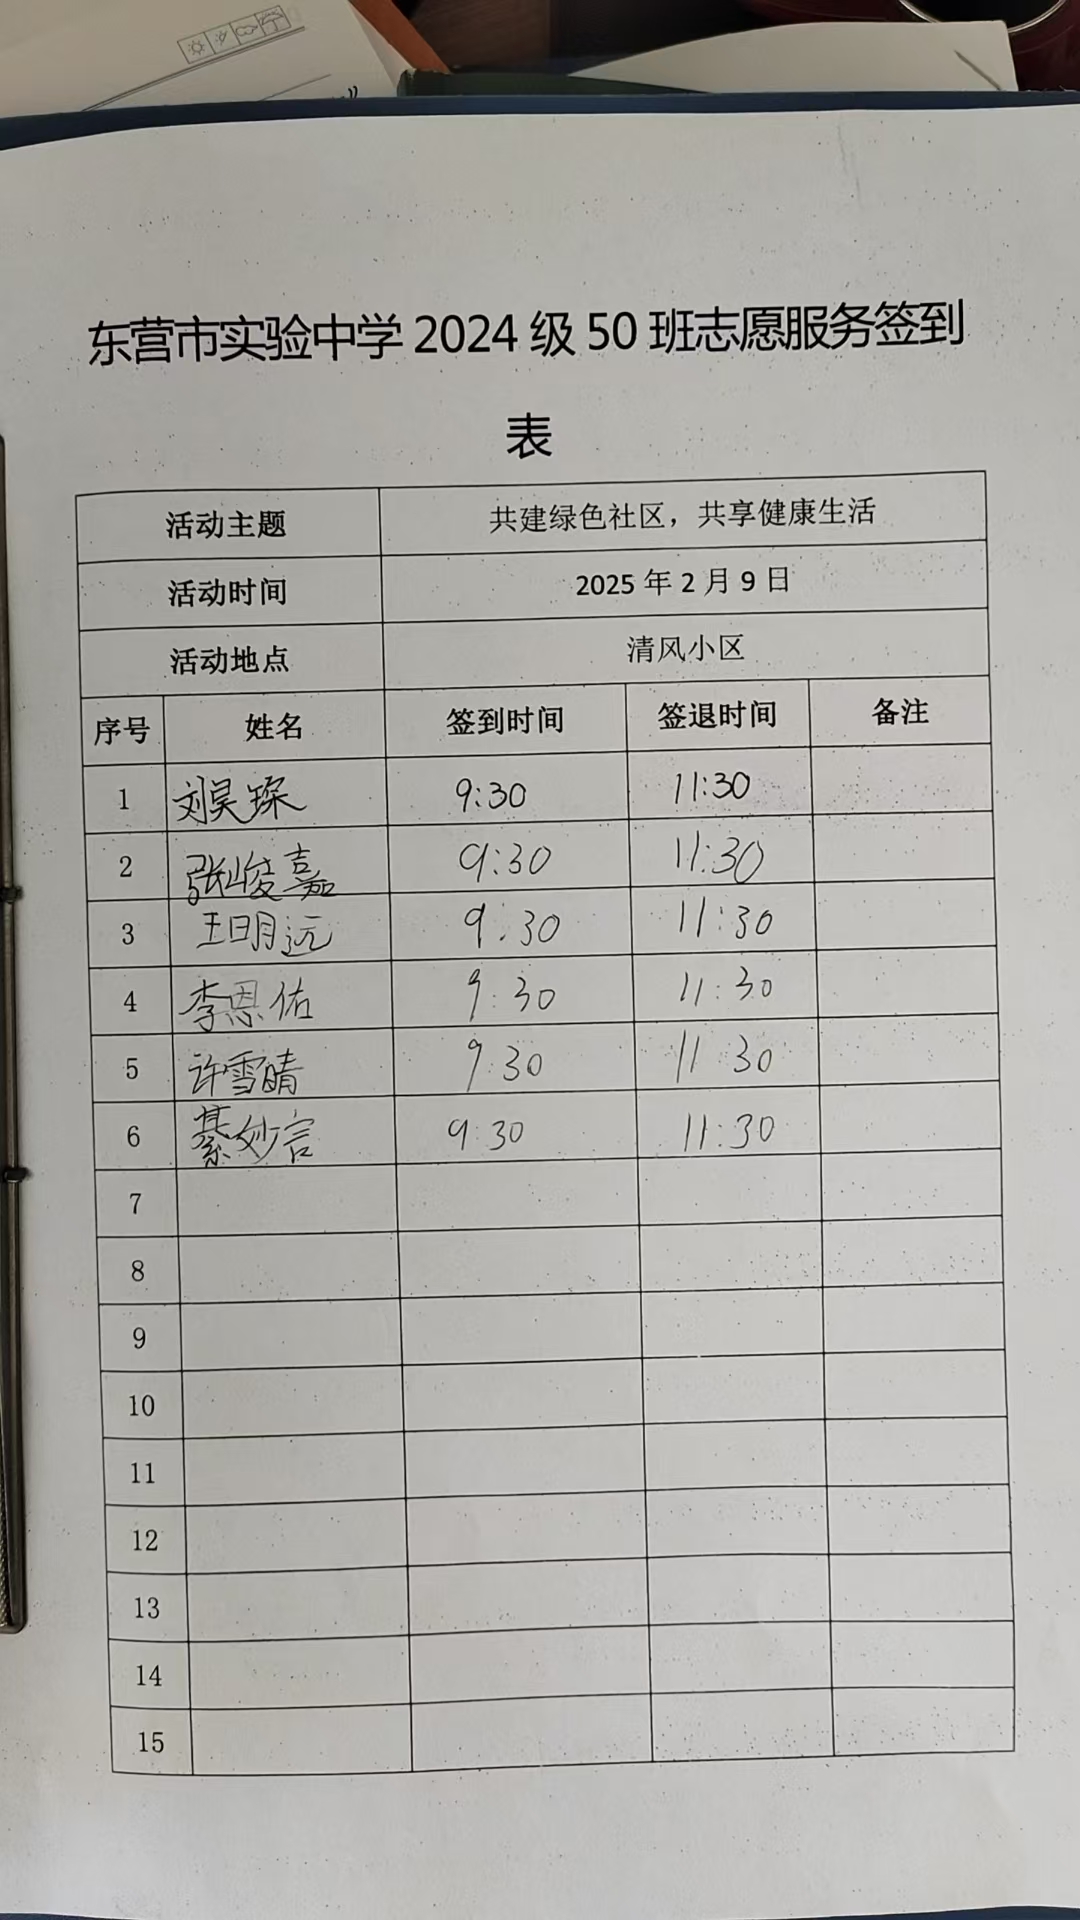 东营市实验中学 2024 级 50 班志愿服务签到
表
活动主题 共建绿色社区，共享健康生活
活动时间 2025 年 2 月 9 日
活动地点 清风小区
序号 姓名 签到时间 签退时间 备注
1 刘昊琛 9:30 11:30
2 张峻嘉 9:30 11:30
3 王明远 9:30 11:30
4 李恩佑 9:30 11:30
5 许雪晴 9:30 11:30
6 綦妙言 9:30 11:30
7
8
9
10
11
12
13
14
15